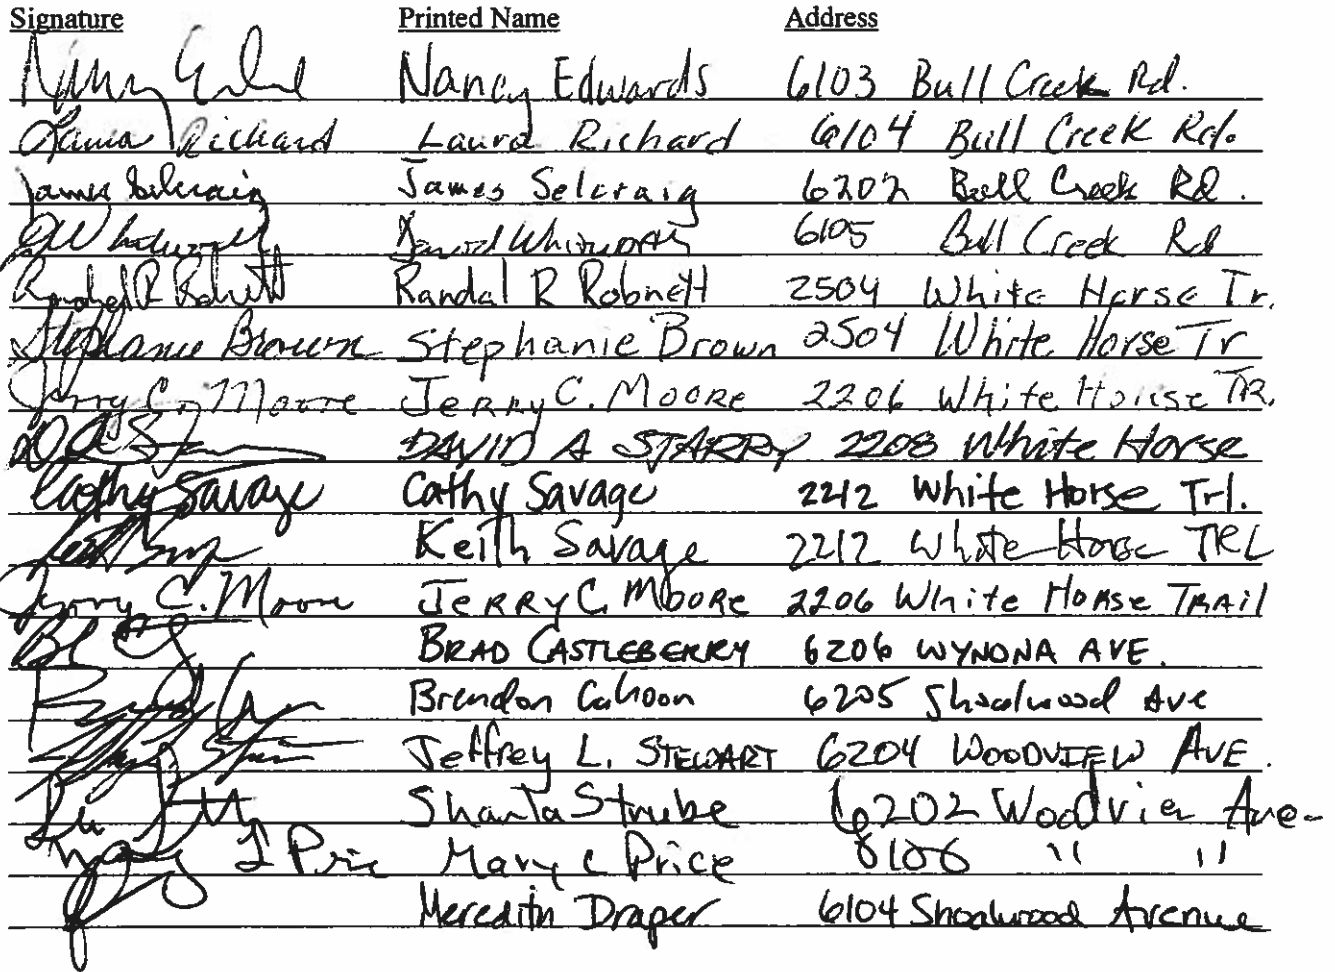 Signature Printed Name Address
Nancy Edwards Nancy Edwards 6103 Bull Creek Rd.
Laura Richard Laura Richard 6104 Bull Creek Rd.
James Selcraig James Selcraig 6202 Bull Creek Rd.
D Whitworth David Whitworth 6105 Bull Creek Rd
Randal R Robnett Randal R Robnett 2504 White Horse Tr.
Stephanie Brown Stephanie Brown 2504 White Horse Tr
Jerry C. Moore Jerry C. Moore 2206 White Horse TR.
DAVID A STARRY 2208 White Horse
Cathy Savage Cathy Savage 2212 White Horse Trl.
Keith Savage 2212 White Horse TRL
Jerry C. Moore JERRY C. MOORE 2206 White Horse TRAIL
BRAD CASTLEBERRY 6206 WYNONA AVE.
Brendon Cahoon 6205 Shoalwood Ave
Jeffrey L. STEWART 6204 WOODVIEW AVE.
Shanta Strube 6202 Woodview Ave.
Mary L Price Mary L Price 6106 " "
Meredith Draper 6104 Shoalwood Avenue